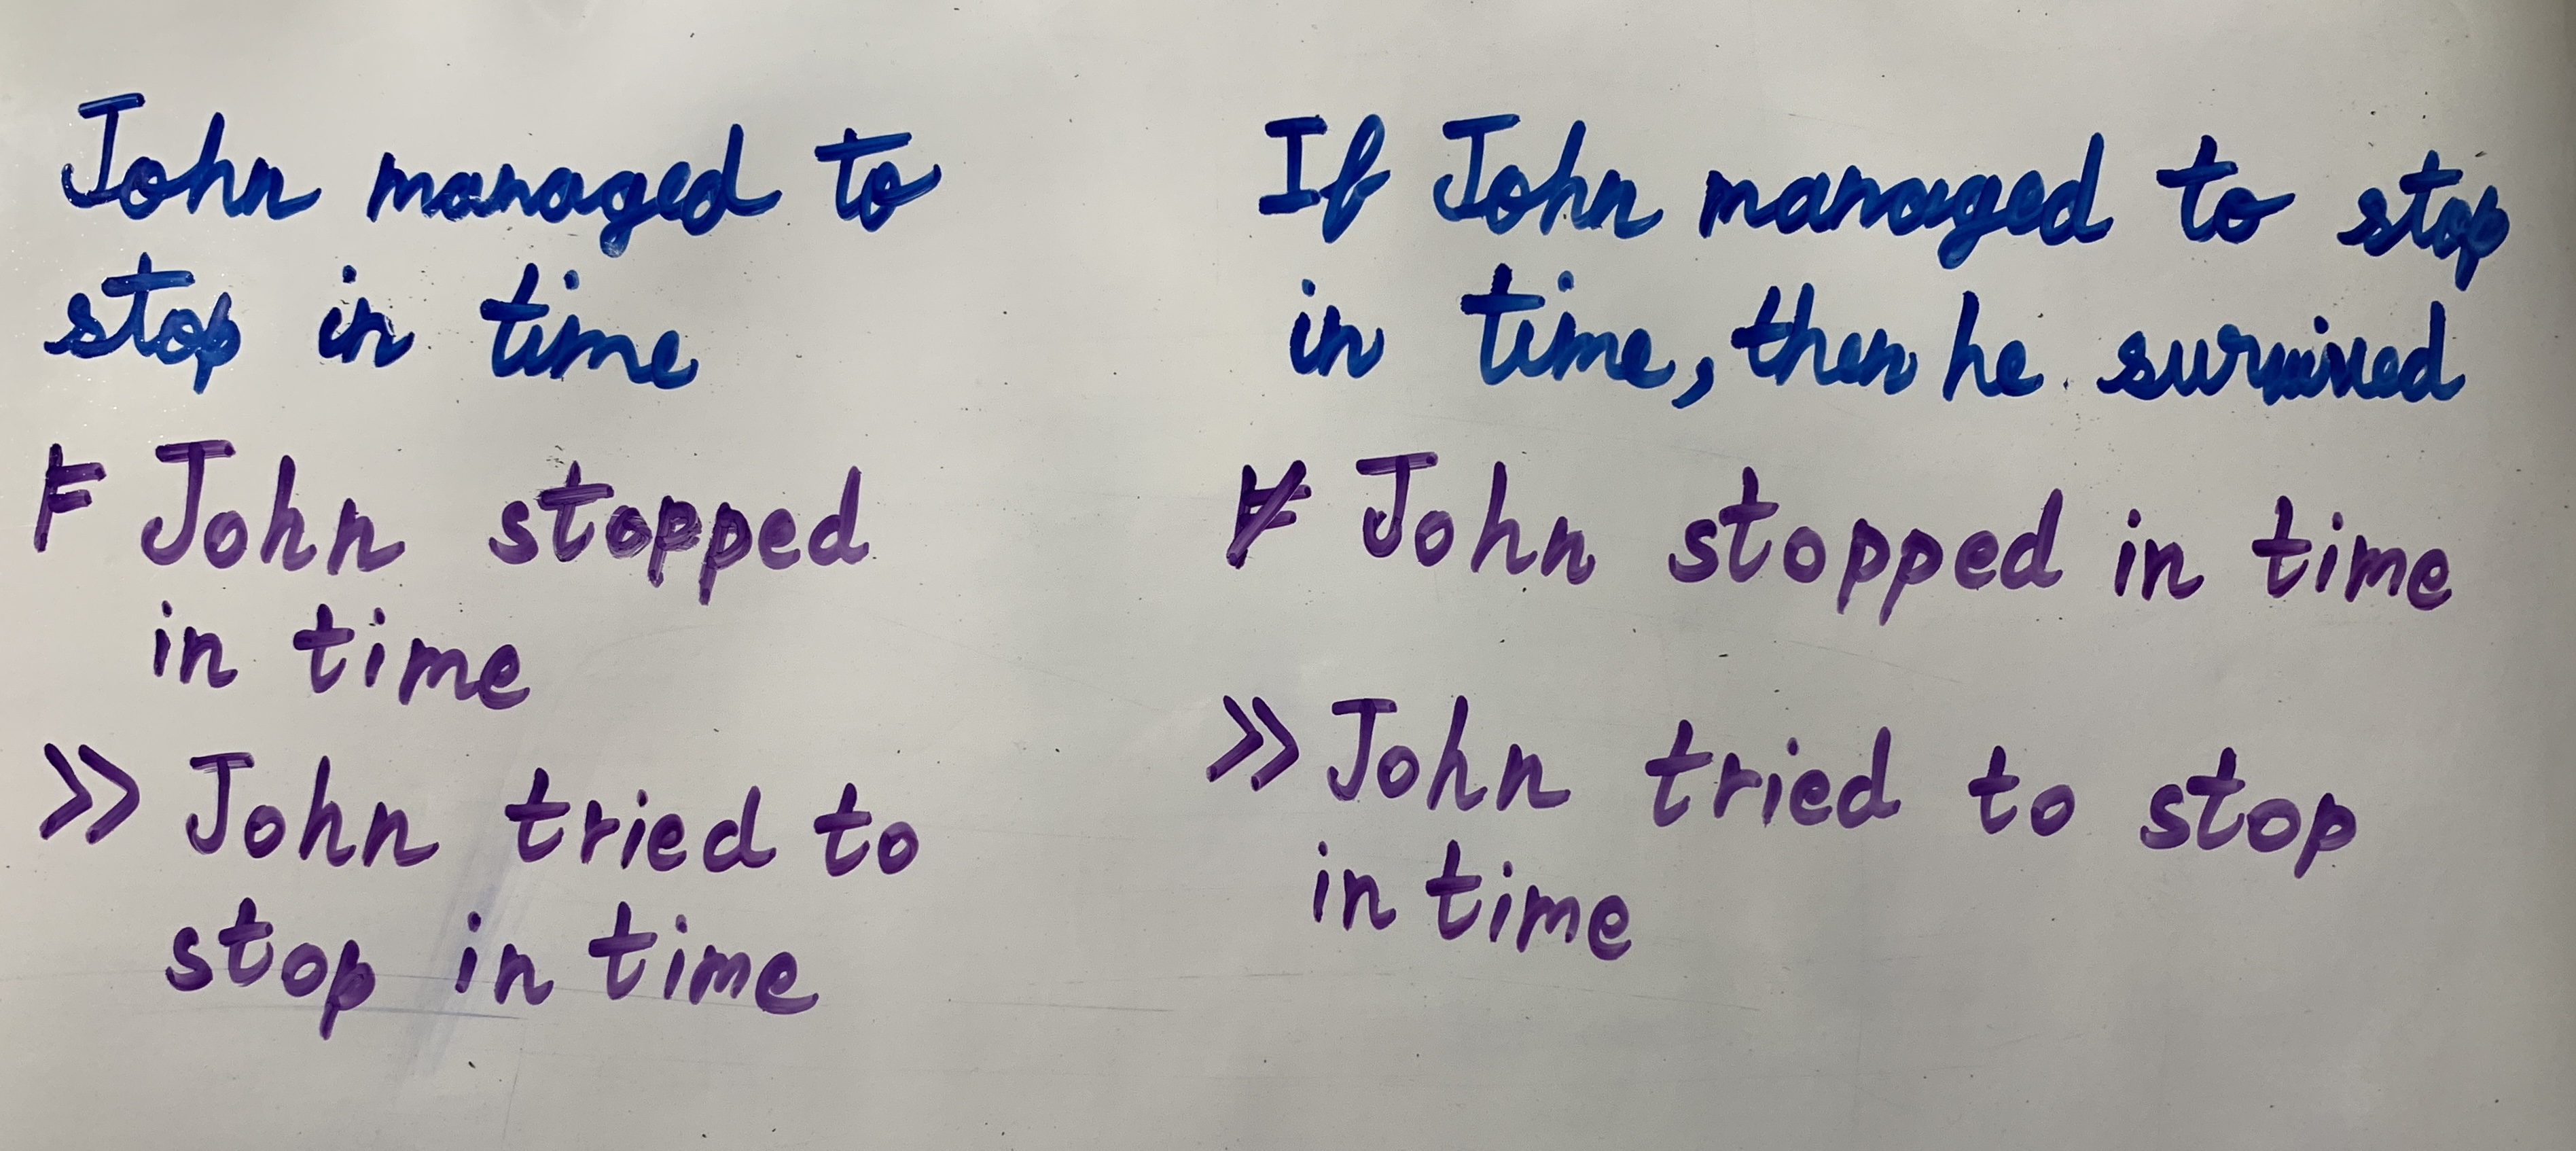 John managed to
stop in time
⊨ John stopped
in time
≫ John tried to
stop in time
If John managed to stop
in time, then he survived
⊭ John stopped in time
≫ John tried to stop
in time